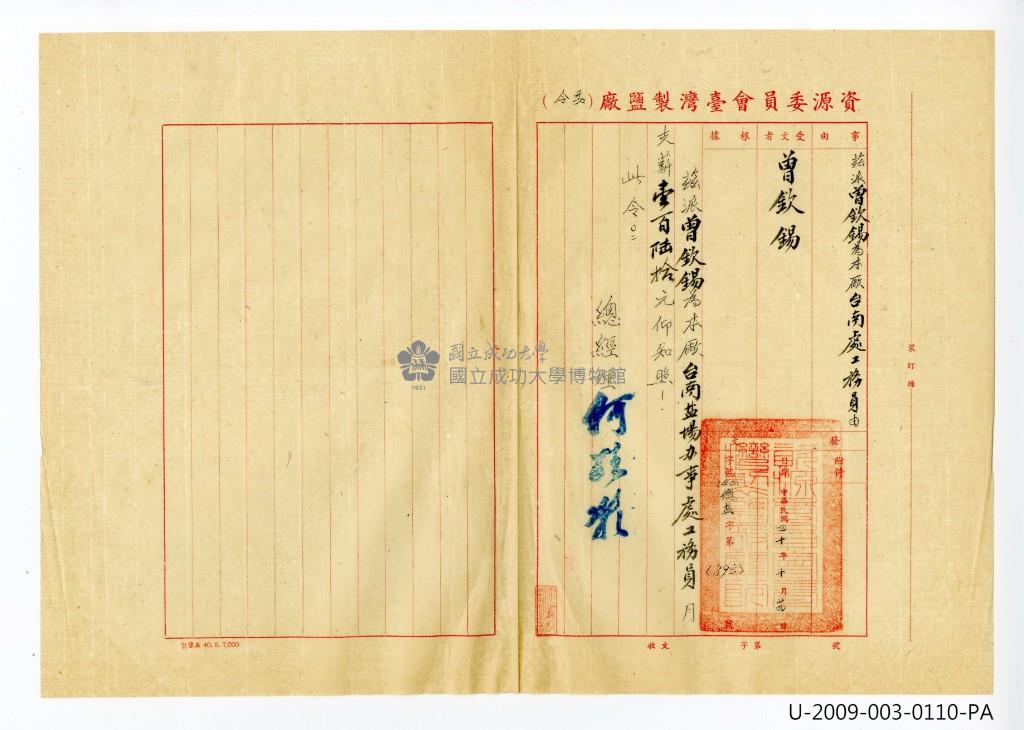 資源委員會臺灣製鹽廠(委令)
事由
受文者
根據
茲派曾欽錫為本廠台南處工務員由
曾欽錫
茲派曾欽錫為本廠台南盐場办事處工務員月
支薪壹百陸拾元仰知照！
此令。
總經理
附件
發文
日期 中華民國四十年十月 日
字號 字第 號
收文 字第 號
裝訂線
國立成功大學
國立成功大學博物館
1931
製鹽廠 40. 5. 7,000
U-2009-003-0110-PA